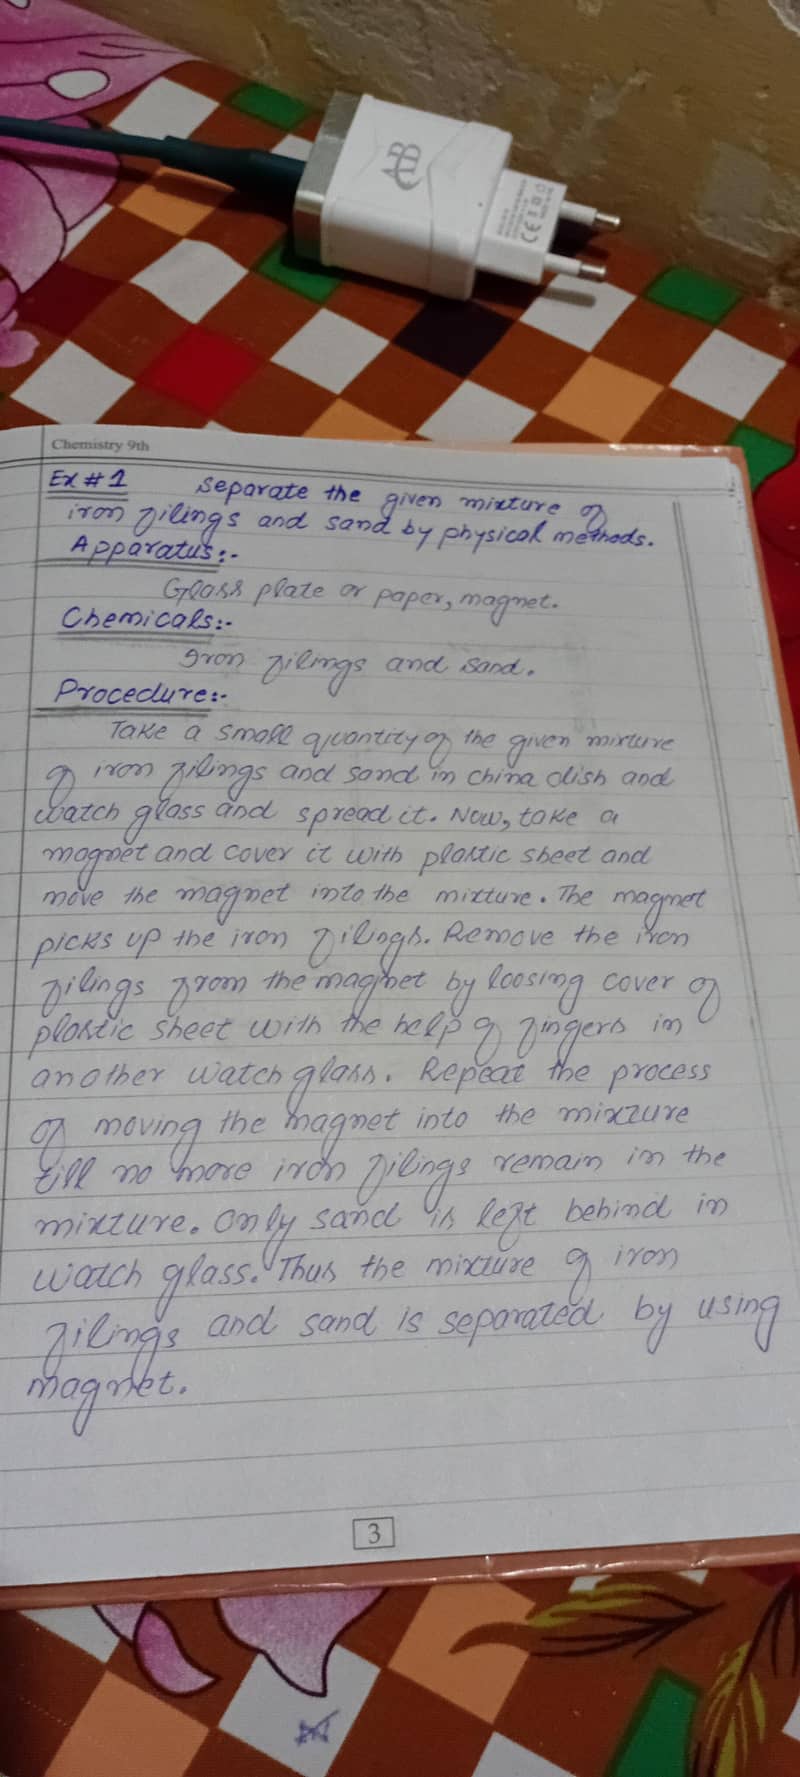 AB
CE
Chemistry 9th
Ex # 1 Separate the given mixture of
iron filings and sand by physical methods.
Apparatus:-
Glass plate or paper, magnet.
Chemicals:-
Iron filings and sand.
Procedure:-
Take a small quantity of the given mixture
of iron filings and sand in china dish and
watch glass and spread it. Now, take a
magnet and cover it with plastic sheet and
move the magnet into the mixture. The magnet
picks up the iron filings. Remove the iron
filings from the magnet by loosing cover of
plastic sheet with the help of fingers in
another watch glass. Repeat the process
of moving the magnet into the mixture
till no more iron filings remain in the
mixture. Only sand is left behind in
watch glass. Thus the mixture of iron
filings and sand is separated by using
magnet.
3